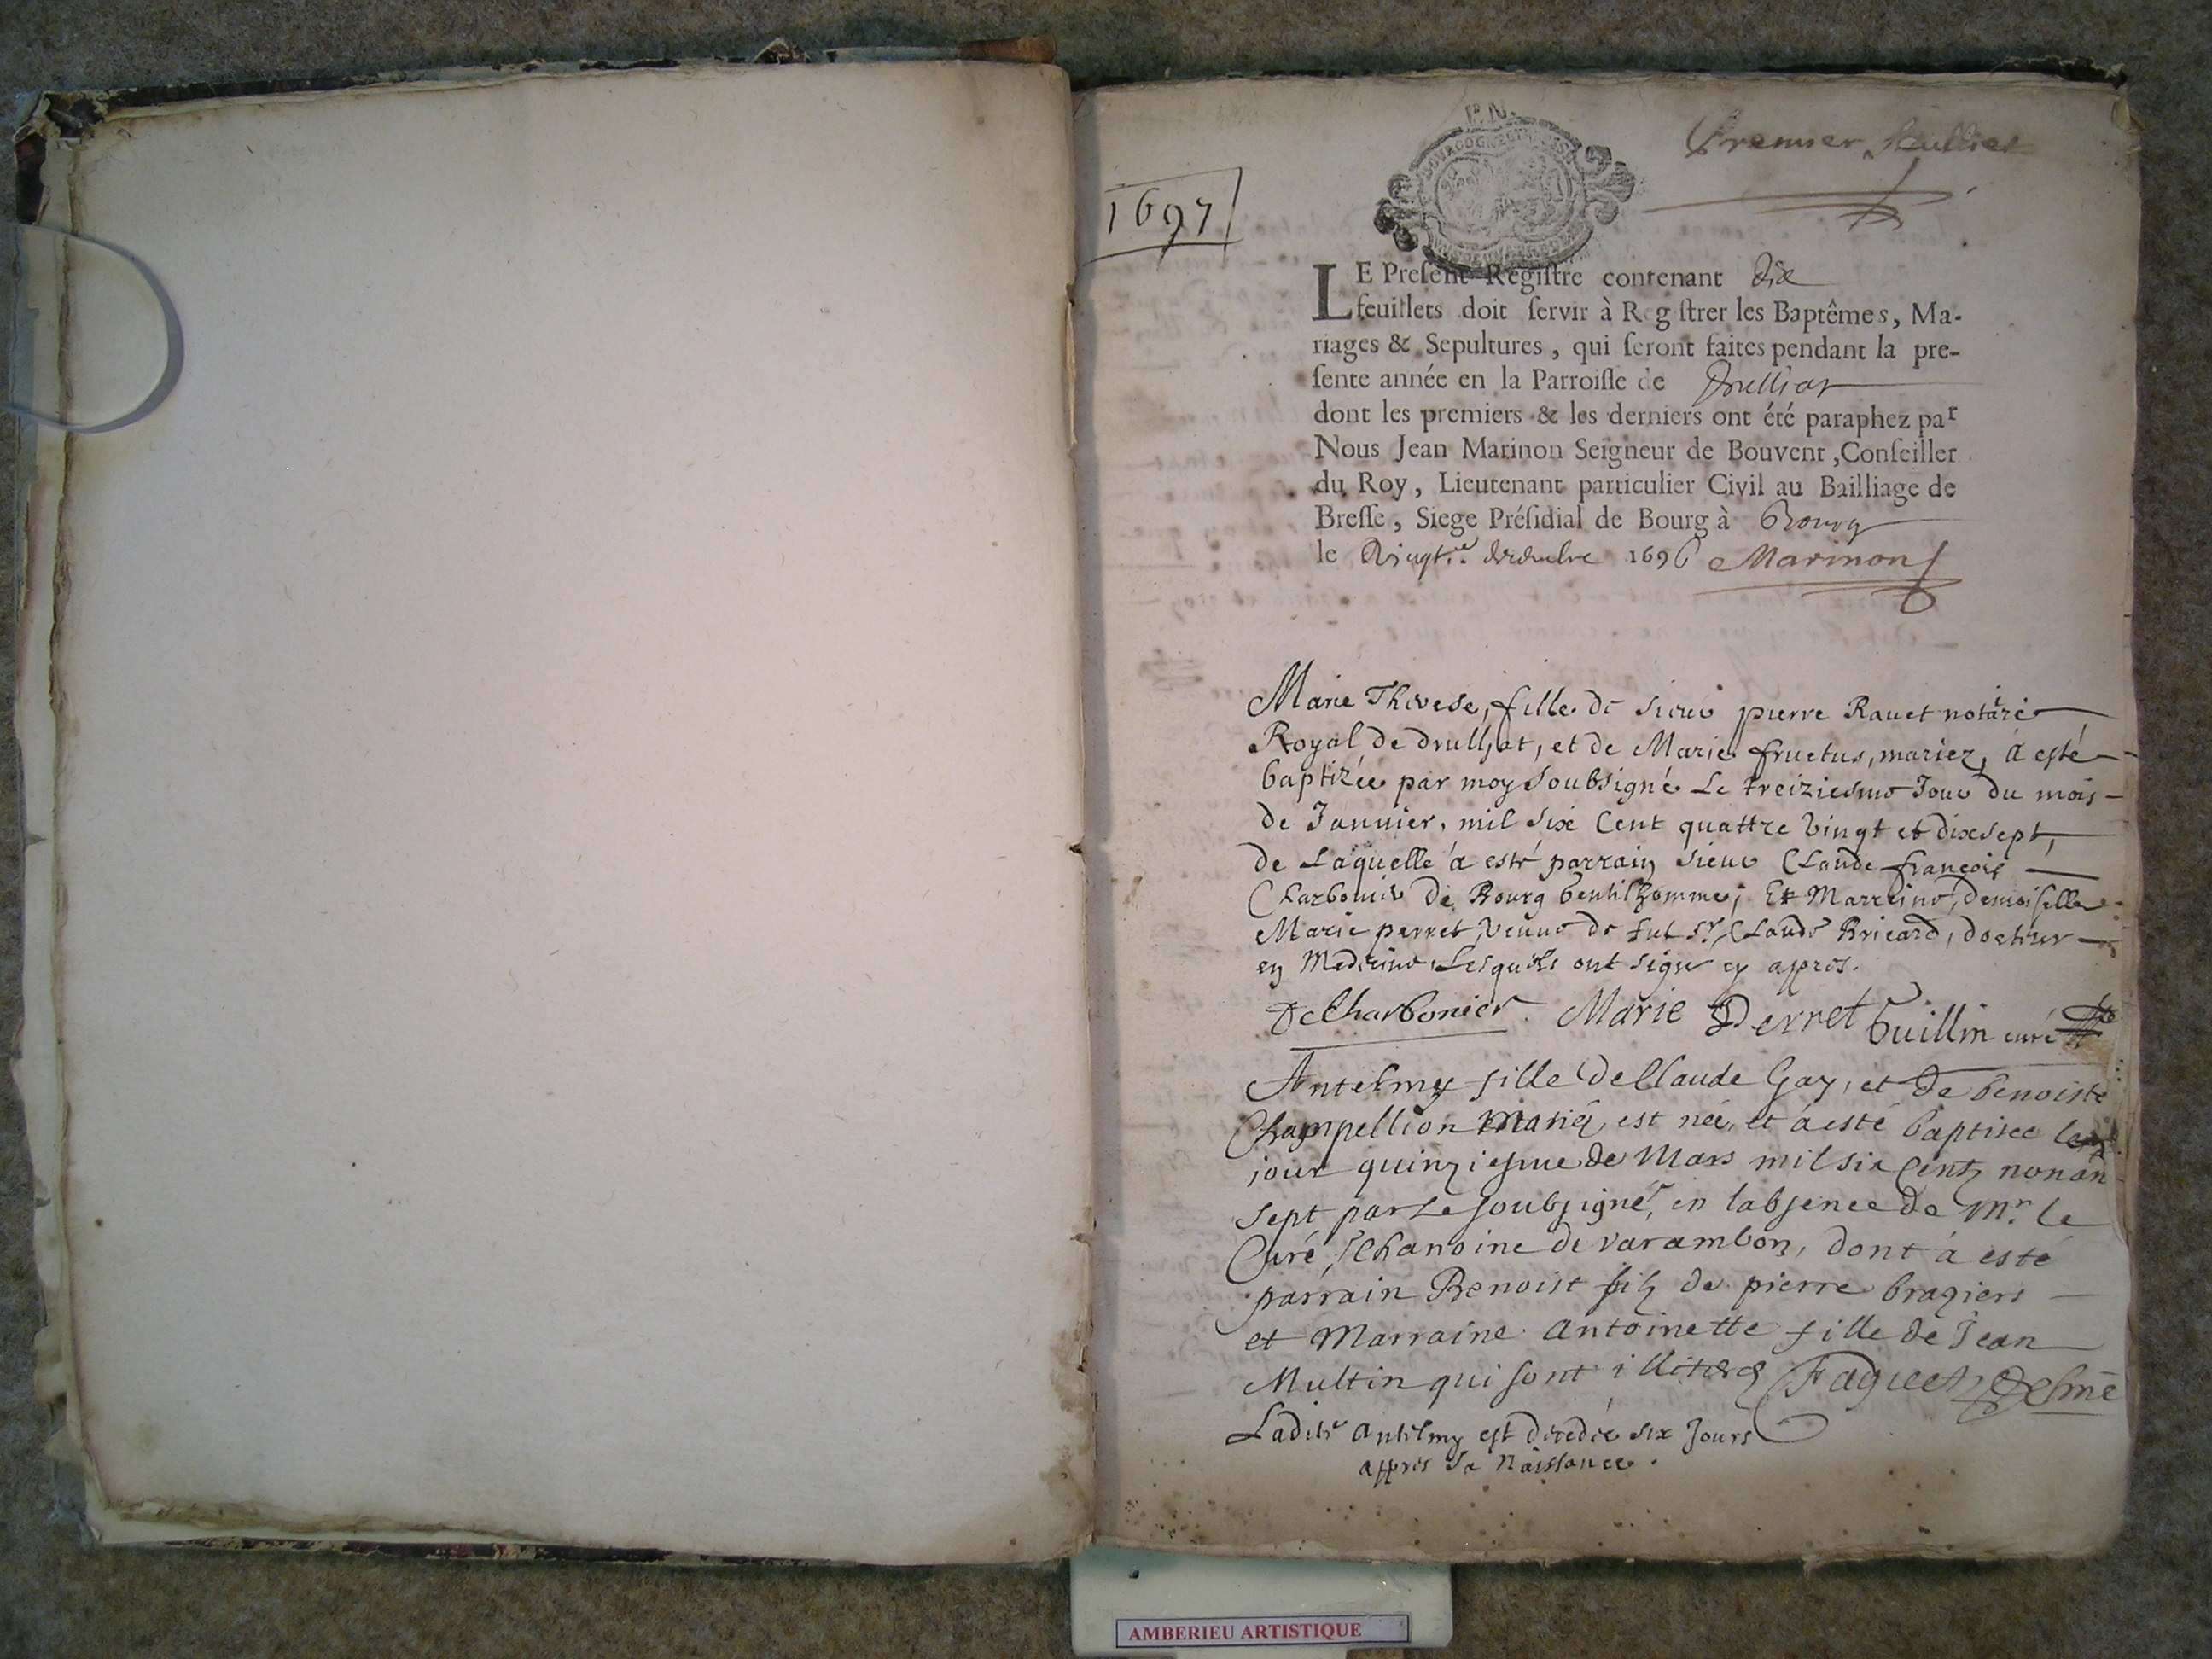 1697
Premier feuillet
LE Present Registre contenant dix
feuillets doit servir à Registrer les Baptêmes, Ma-
riages & Sepultures, qui seront faites pendant la pre-
sente année en la Parroisse de Drulliat
dont les premiers & les derniers ont été paraphez par
Nous Jean Marinon Seigneur de Bouvent, Conseiller
du Roy, Lieutenant particulier Civil au Bailliage de
Bresse, Siege Présidial de Bourg à Bourg
le Vingt.e decembre 1696 Marinon
Marie Therese, fille de sieur pierre Rauet notaire
Royal de drulliat, et de Marie fructus, mariez, à esté
baptizée par moy soubsigné Le treiziesme Jour du mois
de Januier, mil six Cent quattre vingt et dixsept,
de Laquelle à esté parrain sieur Claude françois
Charbonier de Bourg Gentilhomme; Et Marreine, demoiselle
Marie perret, veuue de fut Sr. Claude Bricard, docteur
en Medecine, Lesquels ont signé cy appres.
De Charbonier. Marie Perret Guillin curé
Antelmy fille de Claude Gay, et de benoiste
Champellion Mariés, est née, et à esté baptisée le
jour quinziesme de Mars mil six Cents nonan
sept par Le soubsigné, en l'absence de Mr. le
Curé, Chanoine de Varambon, dont à esté
parrain Benoist filz de pierre bragiers
et Marraine Antoinette fille de Jean
Multin qui sont illiterés Faguet
Ladite Antelmy est decedée six Jours
appres sa Naissance.
AMBERIEU ARTISTIQUE